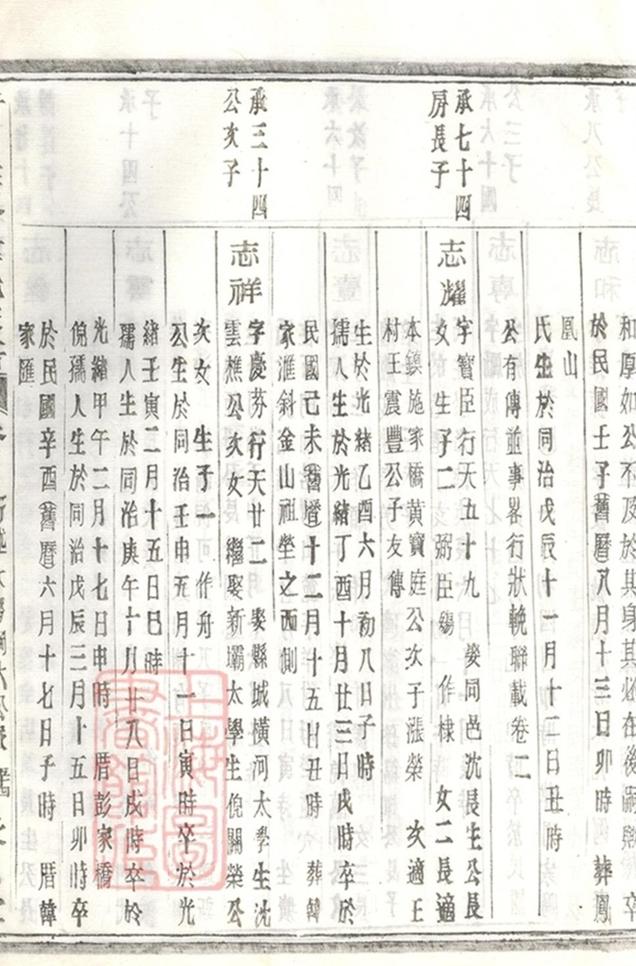 和厚如公不及於其身其必在後嗣與卒
於民國壬子舊曆八月十三日卯時 葬鳳
凰山
氏生於同治戊辰十一月十二日丑時
公有傳並事畧行狀輓聯載卷二
承七十四
房長子
志燿
字寶臣行天五十九 娶同邑沈長生公長
女 生子二 弼臣錫 作棣 女二長適
本鎮施家橋黃寶庭公次子漲榮 次適王
村王震豐公子友傳
生於光緒乙酉六月初八日子時
孺人生於光緒丁酉十月廿三日戌時卒於
民國己未舊曆十二月十五日丑時 葬韓
家滙斜金山祖塋之西側
承三十四
公次子
志祥
字慶芬行天廿二 娶縣城橫河太學生沈
雲樵公次女 繼娶新壩太學生倪關榮公
次女 生子一 作舟
公生於同治壬申五月十一日寅時卒於光
緒壬寅二月十五日巳時
孺人生於同治庚午六月廿八日戌時卒於
光緒甲午二月十七日申時 厝彭家橋
倪孺人生於同治戊辰三月十五日卯時卒
於民國辛酉舊曆六月十七日子時 厝韓
家匯